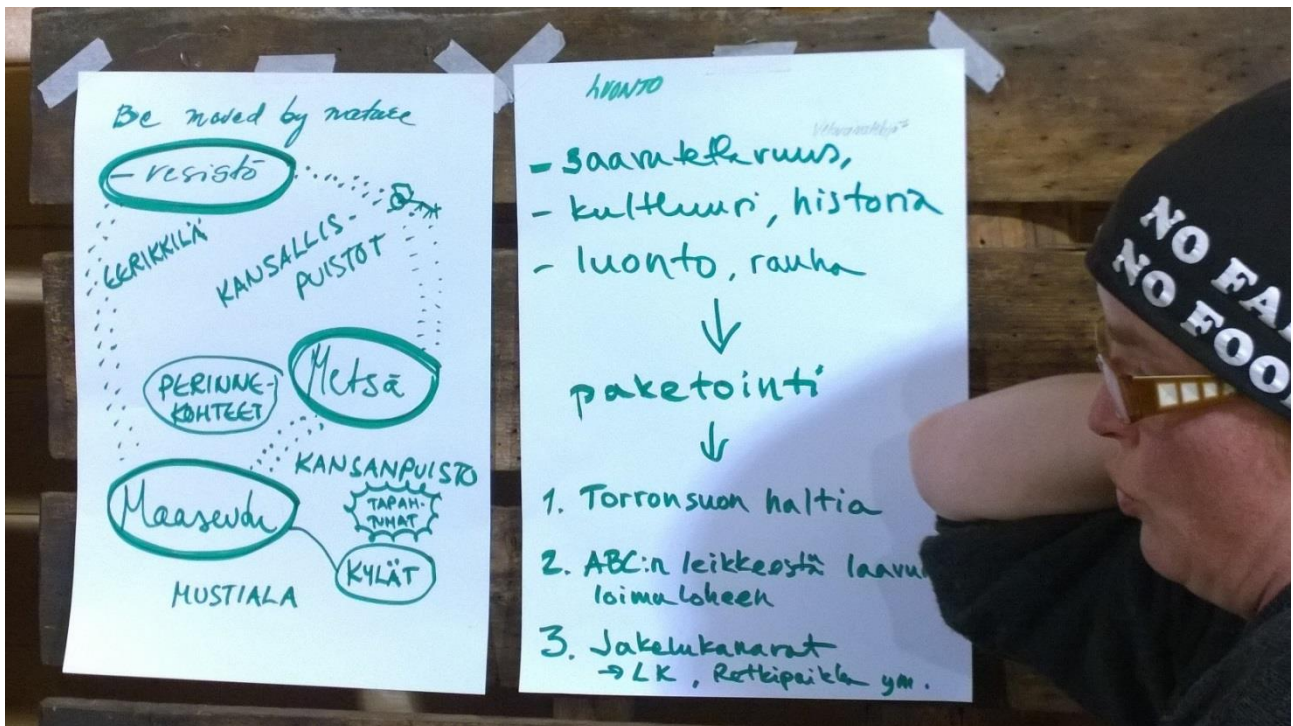 Be moved by nature
- vesistö
EERIKKILÄ
KANSALLIS-
PUISTOT
PERINNE-
KOHTEET
Metsä
KANSANPUISTO
TAPAH-
TUMAT
Maaseutu
KYLÄT
MUSTIALA
LUONTO
- saavutettavuus,
- kulttuuri, historia
- luonto, rauha
↓
paketointi
↓
1. Torronsuon haltia
2. ABC:n leikkeestä
loimuloheen
3. Jakelukanavat
→ LK, Retkipaikka ym.
NO
NO